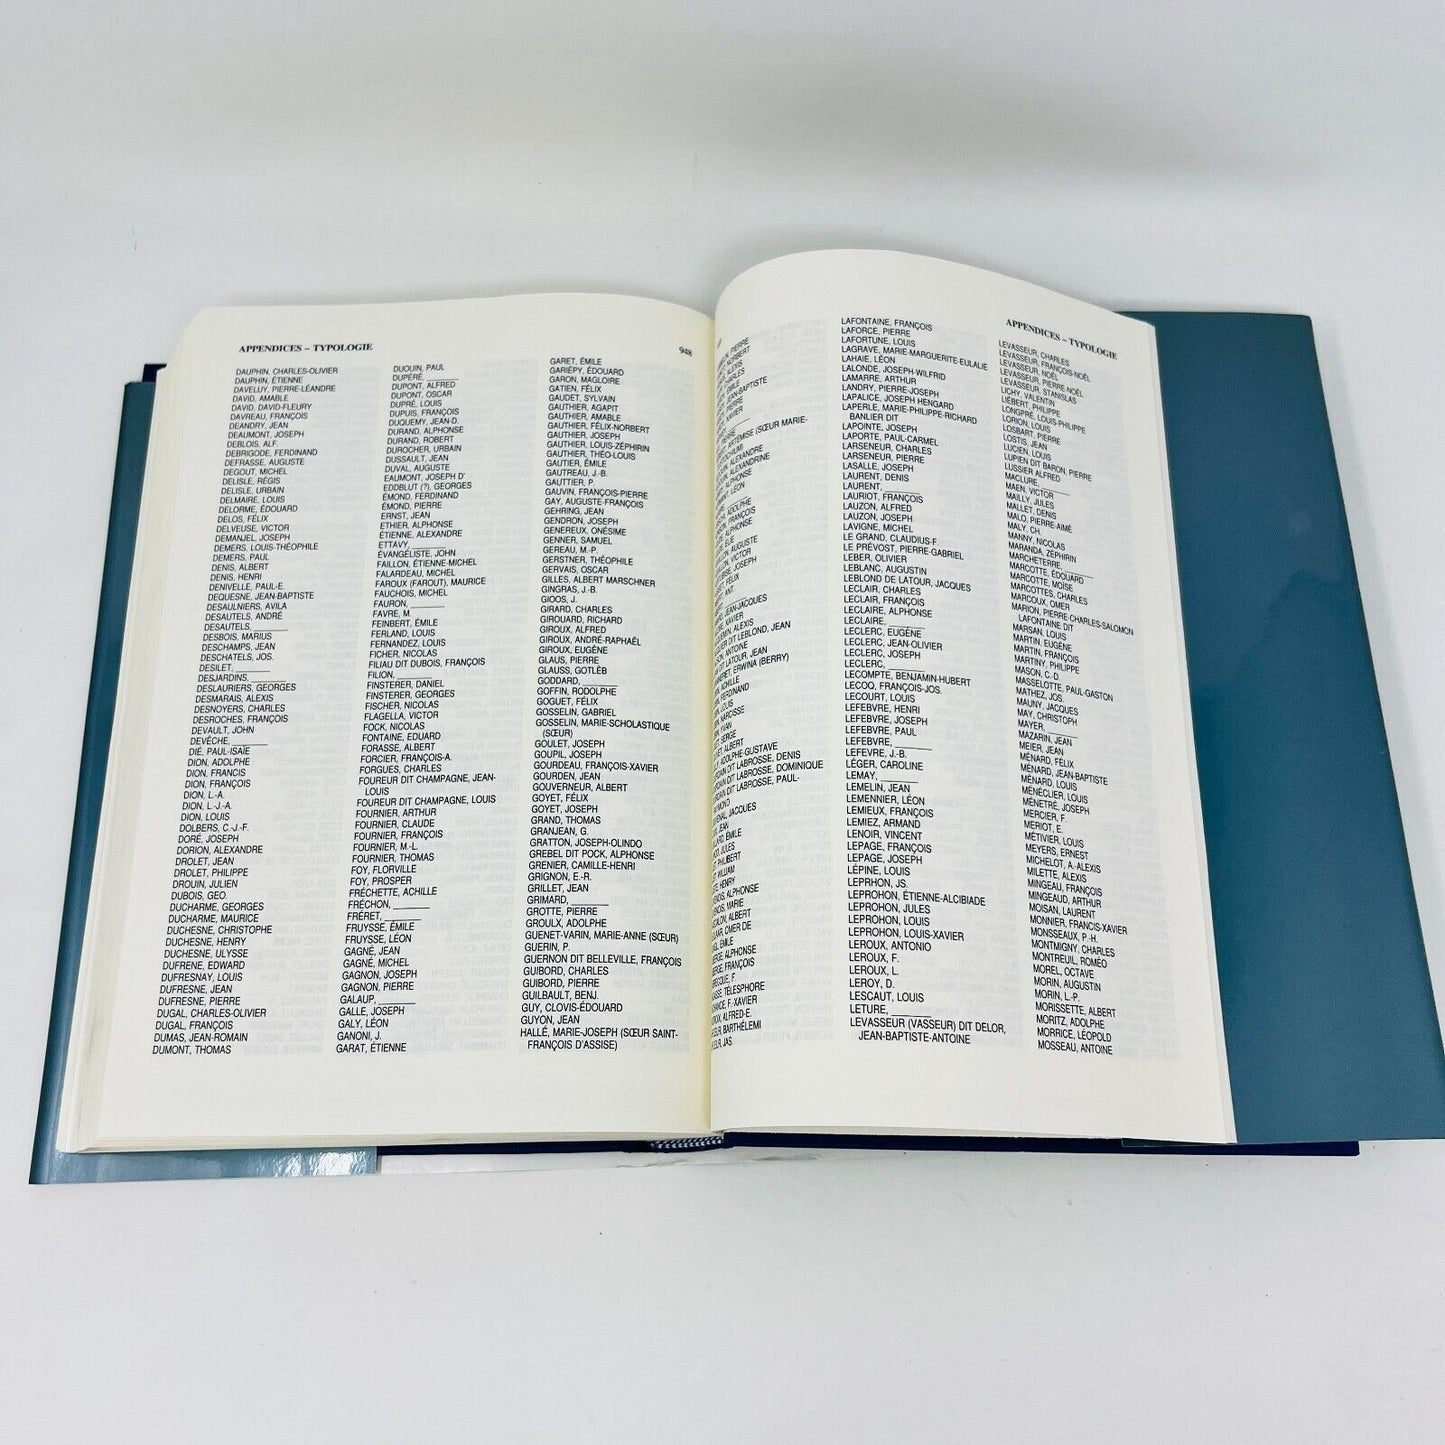 APPENDICES – TYPOLOGIE
948
DAUPHIN, CHARLES-OLIVIER
DAUPHIN, ÉTIENNE
DAVELUY, PIERRE-LÉANDRE
DAVID, AMABLE
DAVID, DAVID-FLEURY
DAVREAU, FRANÇOIS
DEANDRY, JEAN
DEAUMONT, JOSEPH
DEBLOIS, ALF.
DEBRIGODE, FERDINAND
DEFRASSE, AUGUSTE
DEGOUT, MICHEL
DELISLE, RÉGIS
DELISLE, URBAIN
DELMAIRE, LOUIS
DELORME, ÉDOUARD
DELOS, FÉLIX
DELVEUSE, VICTOR
DEMANJEL, JOSEPH
DEMERS, LOUIS-THÉOPHILE
DEMERS, PAUL
DENIS, ALBERT
DENIS, HENRI
DENIVELLE, PAUL-E.
DEQUESNE, JEAN-BAPTISTE
DESAULNIERS, AVILA
DESAUTELS, ANDRÉ
DESAUTELS, ________
DESBOIS, MARIUS
DESCHAMPS, JEAN
DESCHATELS, JOS.
DESILET, ________
DESJARDINS, ________
DESLAURIERS, GEORGES
DESMARAIS, ALEXIS
DESNOYERS, CHARLES
DESROCHES, FRANÇOIS
DEVAULT, JOHN
DEVÊCHE, ________
DIÉ, PAUL-ISAÏE
DION, ADOLPHE
DION, FRANCIS
DION, FRANÇOIS
DION, L.-A.
DION, L.-J.-A.
DION, LOUIS
DOLBERS, C.-J.-F.
DORÉ, JOSEPH
DORION, ALEXANDRE
DROLET, JEAN
DROLET, PHILIPPE
DROUIN, JULIEN
DUBOIS, GEO.
DUCHARME, GEORGES
DUCHARME, MAURICE
DUCHESNE, CHRISTOPHE
DUCHESNE, HENRY
DUCHESNE, ULYSSE
DUFRENE, EDWARD
DUFRESNAY, LOUIS
DUFRESNE, JEAN
DUFRESNE, PIERRE
DUGAL, CHARLES-OLIVIER
DUGAL, FRANÇOIS
DUMAS, JEAN-ROMAIN
DUMONT, THOMAS
DUOUIN, PAUL
DUPÉRÉ, ________
DUPONT, ALFRED
DUPONT, OSCAR
DUPRÉ, LOUIS
DUPUIS, FRANÇOIS
DUQUEMY, JEAN-D.
DURAND, ALPHONSE
DURAND, ROBERT
DUROCHER, URBAIN
DUSSAULT, JEAN
DUVAL, AUGUSTE
EAUMONT, JOSEPH D'
EDDBLUT (?), GEORGES
ÉMOND, FERDINAND
ÉMOND, PIERRE
ERNST, JEAN
ETHIER, ALPHONSE
ÉTIENNE, ALEXANDRE
ETTAVY, ________
ÉVANGÉLISTE, JOHN
FAILLON, ÉTIENNE-MICHEL
FALARDEAU, MICHEL
FAROUX (FAROUT), MAURICE
FAUCHOIS, MICHEL
FAURON, ________
FAVRE, M.
FEINBERT, ÉMILE
FERLAND, LOUIS
FERNANDEZ, LOUIS
FICHER, NICOLAS
FILIAU DIT DUBOIS, FRANÇOIS
FILION, ________
FINSTERER, DANIEL
FINSTERER, GEORGES
FISCHER, NICOLAS
FLAGELLA, VICTOR
FOCK, NICOLAS
FONTAINE, EDUARD
FORASSE, ALBERT
FORCIER, FRANÇOIS-A.
FORGUES, CHARLES
FOUREUR DIT CHAMPAGNE, JEAN-
LOUIS
FOUREUR DIT CHAMPAGNE, LOUIS
FOURNIER, ARTHUR
FOURNIER, CLAUDE
FOURNIER, FRANÇOIS
FOURNIER, M.-L.
FOURNIER, THOMAS
FOY, FLORVILLE
FOY, PROSPER
FRÉCHETTE, ACHILLE
FRÉCHON, ________
FRÉRET, ________
FRUYSSE, ÉMILE
FRUYSSE, LÉON
GAGNÉ, JEAN
GAGNÉ, MICHEL
GAGNON, JOSEPH
GAGNON, PIERRE
GALAUP, ________
GALLE, JOSEPH
GALY, LÉON
GANONI, J.
GARAT, ÉTIENNE
GARET, ÉMILE
GARIÉPY, ÉDOUARD
GARON, MAGLOIRE
GATIEN, FÉLIX
GAUDET, SYLVAIN
GAUTHIER, AGAPIT
GAUTHIER, AMABLE
GAUTHIER, FÉLIX-NORBERT
GAUTHIER, JOSEPH
GAUTHIER, LOUIS-ZÉPHIRIN
GAUTHIER, THÉO-LOUIS
GAUTIER, ÉMILE
GAUTREAU, J.-B.
GAUTTIER, P.
GAUVIN, FRANÇOIS-PIERRE
GAY, AUGUSTE-FRANÇOIS
GEHRING, JEAN
GENDRON, JOSEPH
GENEREUX, ONÉSIME
GENNER, SAMUEL
GEREAU, M.-P.
GERSTNER, THÉOPHILE
GERVAIS, OSCAR
GILLES, ALBERT MARSCHNER
GINGRAS, J.-B.
GIOOS, J.
GIRARD, CHARLES
GIROUARD, RICHARD
GIROUX, ALFRED
GIROUX, ANDRÉ-RAPHAËL
GIROUX, EUGÈNE
GLAUS, PIERRE
GLAUSS, GOTLËB
GODDARD, ________
GOFFIN, RODOLPHE
GOGUET, FÉLIX
GOSSELIN, GABRIEL
GOSSELIN, MARIE-SCHOLASTIQUE
(SŒUR)
GOULET, JOSEPH
GOUPIL, JOSEPH
GOURDEAU, FRANÇOIS-XAVIER
GOURDEN, JEAN
GOUVERNEUR, ALBERT
GOYET, FÉLIX
GOYET, JOSEPH
GRAND, THOMAS
GRANJEAN, G.
GRATTON, JOSEPH-OLINDO
GREBEL DIT POCK, ALPHONSE
GRENIER, CAMILLE-HENRI
GRIGNON, E.-R.
GRILLET, JEAN
GRIMARD, ________
GROTTE, PIERRE
GROULX, ADOLPHE
GUENET-VARIN, MARIE-ANNE (SŒUR)
GUERIN, P.
GUERNON DIT BELLEVILLE, FRANÇOIS
GUIBORD, CHARLES
GUIBORD, PIERRE
GUILBAULT, BENJ.
GUY, CLOVIS-ÉDOUARD
GUYON, JEAN
HALLÉ, MARIE-JOSEPH (SŒUR SAINT-
FRANÇOIS D'ASSISE)
APPENDICES – TYPOLOGIE
PIERRE
NORBERT
ALEXIS
JEAN-BAPTISTE
PIERRE
XAVIER
ARTÉMISE (SŒUR MARIE-
ALEXANDRE
ALEXANDRINE
ALPHONSE
LÉON
ADOLPHE
FRANÇOIS
ALPHONSE
AUGUSTE
VICTOR
JOSEPH
FÉLIX
JEAN-JACQUES
XAVIER
ALEXIS
DIT LEBLOND, JEAN
ANTOINE
DIT LATOUR, JEAN
ERWINA (BERRY)
ACHILLE
FERDINAND
LOUIS
NARCISSE
YVAN
SERGE
ALBERT
ADOLPHE-GUSTAVE
DIT LABROSSE, DENIS
DIT LABROSSE, DOMINIQUE
DIT LABROSSE, PAUL-
JACQUES
JEAN
ÉMILE
JULES
PHILIBERT
WILLIAM
HENRY
ALPHONSE
MARIE
ALBERT
OMER DE
ÉMILE
ALPHONSE
FRANÇOIS
F.
TÉLESPHORE
F.-XAVIER
ALFRED-E.
BARTHÉLEMI
JAS.
LAFONTAINE, FRANÇOIS
LAFORCE, PIERRE
LAFORTUNE, LOUIS
LAGRAVE, MARIE-MARGUERITE-EULALIE
LAHAIE, LÉON
LALONDE, JOSEPH-WILFRID
LAMARRE, ARTHUR
LANDRY, PIERRE-JOSEPH
LAPALICE, JOSEPH HENGARD
LAPERLE, MARIE-PHILIPPE-RICHARD
BANLIER DIT
LAPOINTE, JOSEPH
LAPORTE, PAUL-CARMEL
LARSENEUR, CHARLES
LARSENEUR, PIERRE
LASALLE, JOSEPH
LAURENT, DENIS
LAURENT, ________
LAURIOT, FRANÇOIS
LAUZON, ALFRED
LAUZON, JOSEPH
LAVIGNE, MICHEL
LE GRAND, CLAUDIUS-F.
LE PRÉVOST, PIERRE-GABRIEL
LEBER, OLIVIER
LEBLANC, AUGUSTIN
LEBLOND DE LATOUR, JACQUES
LECLAIR, CHARLES
LECLAIR, FRANÇOIS
LECLAIRE, ALPHONSE
LECLAIRE, ________
LECLERC, EUGÈNE
LECLERC, JEAN-OLIVIER
LECLERC, JOSEPH
LECLERC, ________
LECOMPTE, BENJAMIN-HUBERT
LECOQ, FRANÇOIS-JOS.
LECOURT, LOUIS
LEFEBVRE, HENRI
LEFEBVRE, JOSEPH
LEFEBVRE, PAUL
LEFEBVRE, ________
LEFEVRE, J.-B.
LÉGER, CAROLINE
LEMAY, ________
LEMELIN, JEAN
LEMENNIER, LÉON
LEMIEUX, FRANÇOIS
LEMIEZ, ARMAND
LENOIR, VINCENT
LEPAGE, FRANÇOIS
LEPAGE, JOSEPH
LÉPINE, LOUIS
LEPRHON, JS.
LEPROHON, ÉTIENNE-ALCIBIADE
LEPROHON, JULES
LEPROHON, LOUIS
LEPROHON, LOUIS-XAVIER
LEROUX, ANTONIO
LEROUX, F.
LEROUX, L.
LEROY, D.
LESCAUT, LOUIS
LETURE, ________
LEVASSEUR (VASSEUR) DIT DELOR,
JEAN-BAPTISTE-ANTOINE
LEVASSEUR, CHARLES
LEVASSEUR, FRANÇOIS-NOËL
LEVASSEUR, NOËL
LEVASSEUR, PIERRE-NOËL
LEVASSEUR, STANISLAS
LICHY, VALENTIN
LIÉBERT, PHILIPPE
LONGPRÉ, LOUIS-PHILIPPE
LORION, LOUIS
LOSBART, PIERRE
LOSTIS, JEAN
LUCIEN, LOUIS
LUPIEN DIT BARON, PIERRE
LUSSIER ALFRED
MACLURE, ________
MAEN, VICTOR
MAILLY, JULES
MALLET, DENIS
MALO, PIERRE-AIMÉ
MALY, CH.
MANNY, NICOLAS
MARANDA, ZÉPHIRIN
MARCHETERRE, ________
MARCOTTE, ÉDOUARD
MARCOTTE, MOÏSE
MARCOTTES, CHARLES
MARCOUX, OMER
MARION, PIERRE-CHARLES-SALOMON
LAFONTAINE DIT
MARSAN, LOUIS
MARTIN, EUGÈNE
MARTIN, FRANÇOIS
MARTINY, PHILIPPE
MASON, C.-D.
MASSELOTTE, PAUL-GASTON
MATHEZ, JOS.
MAUNY, JACQUES
MAY, CHRISTOPH
MAYER, ________
MAZARIN, JEAN
MEIER, JEAN
MÉNARD, FÉLIX
MÉNARD, JEAN-BAPTISTE
MÉNÉCLIER, LOUIS
MÉNETRÉ, JOSEPH
MERCIER, F.
MERIOT, E.
MÉTIVIER, LOUIS
MEYERS, ERNEST
MICHELOT, A.-ALEXIS
MILETTE, ALEXIS
MINGEAU, FRANÇOIS
MINGEAUD, ARTHUR
MOISAN, LAURENT
MONNIER, FRANCIS-XAVIER
MONSSEAUX, P.-H.
MONTMIGNY, CHARLES
MONTREUIL, ROMÉO
MOREL, OCTAVE
MORIN, AUGUSTIN
MORIN, L.-P.
MORISSETTE, ALBERT
MORITZ, ADOLPHE
MORRICE, LÉOPOLD
MOSSEAU, ANTOINE